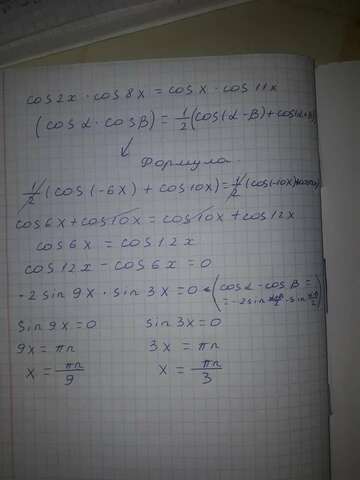 cos2x · cos8x = cosx · cos11x
(cosα · cosβ) = 1/2(cos(α-β)+cos(α+β))
↙
Формула
1/2(cos(-6x) + cos10x) = 1/2(cos(-10x)+cos12x)
cos6x + cos10x = cos10x + cos12x
cos6x = cos12x
cos12x - cos6x = 0
·2sin9x · sin3x = 0 ← (cosα - cosβ = = -2sin (α+β)/2 · sin (α-β)/2)
sin9x = 0 sin3x = 0
9x = πn 3x = πn
x = πn/9 x = πn/3